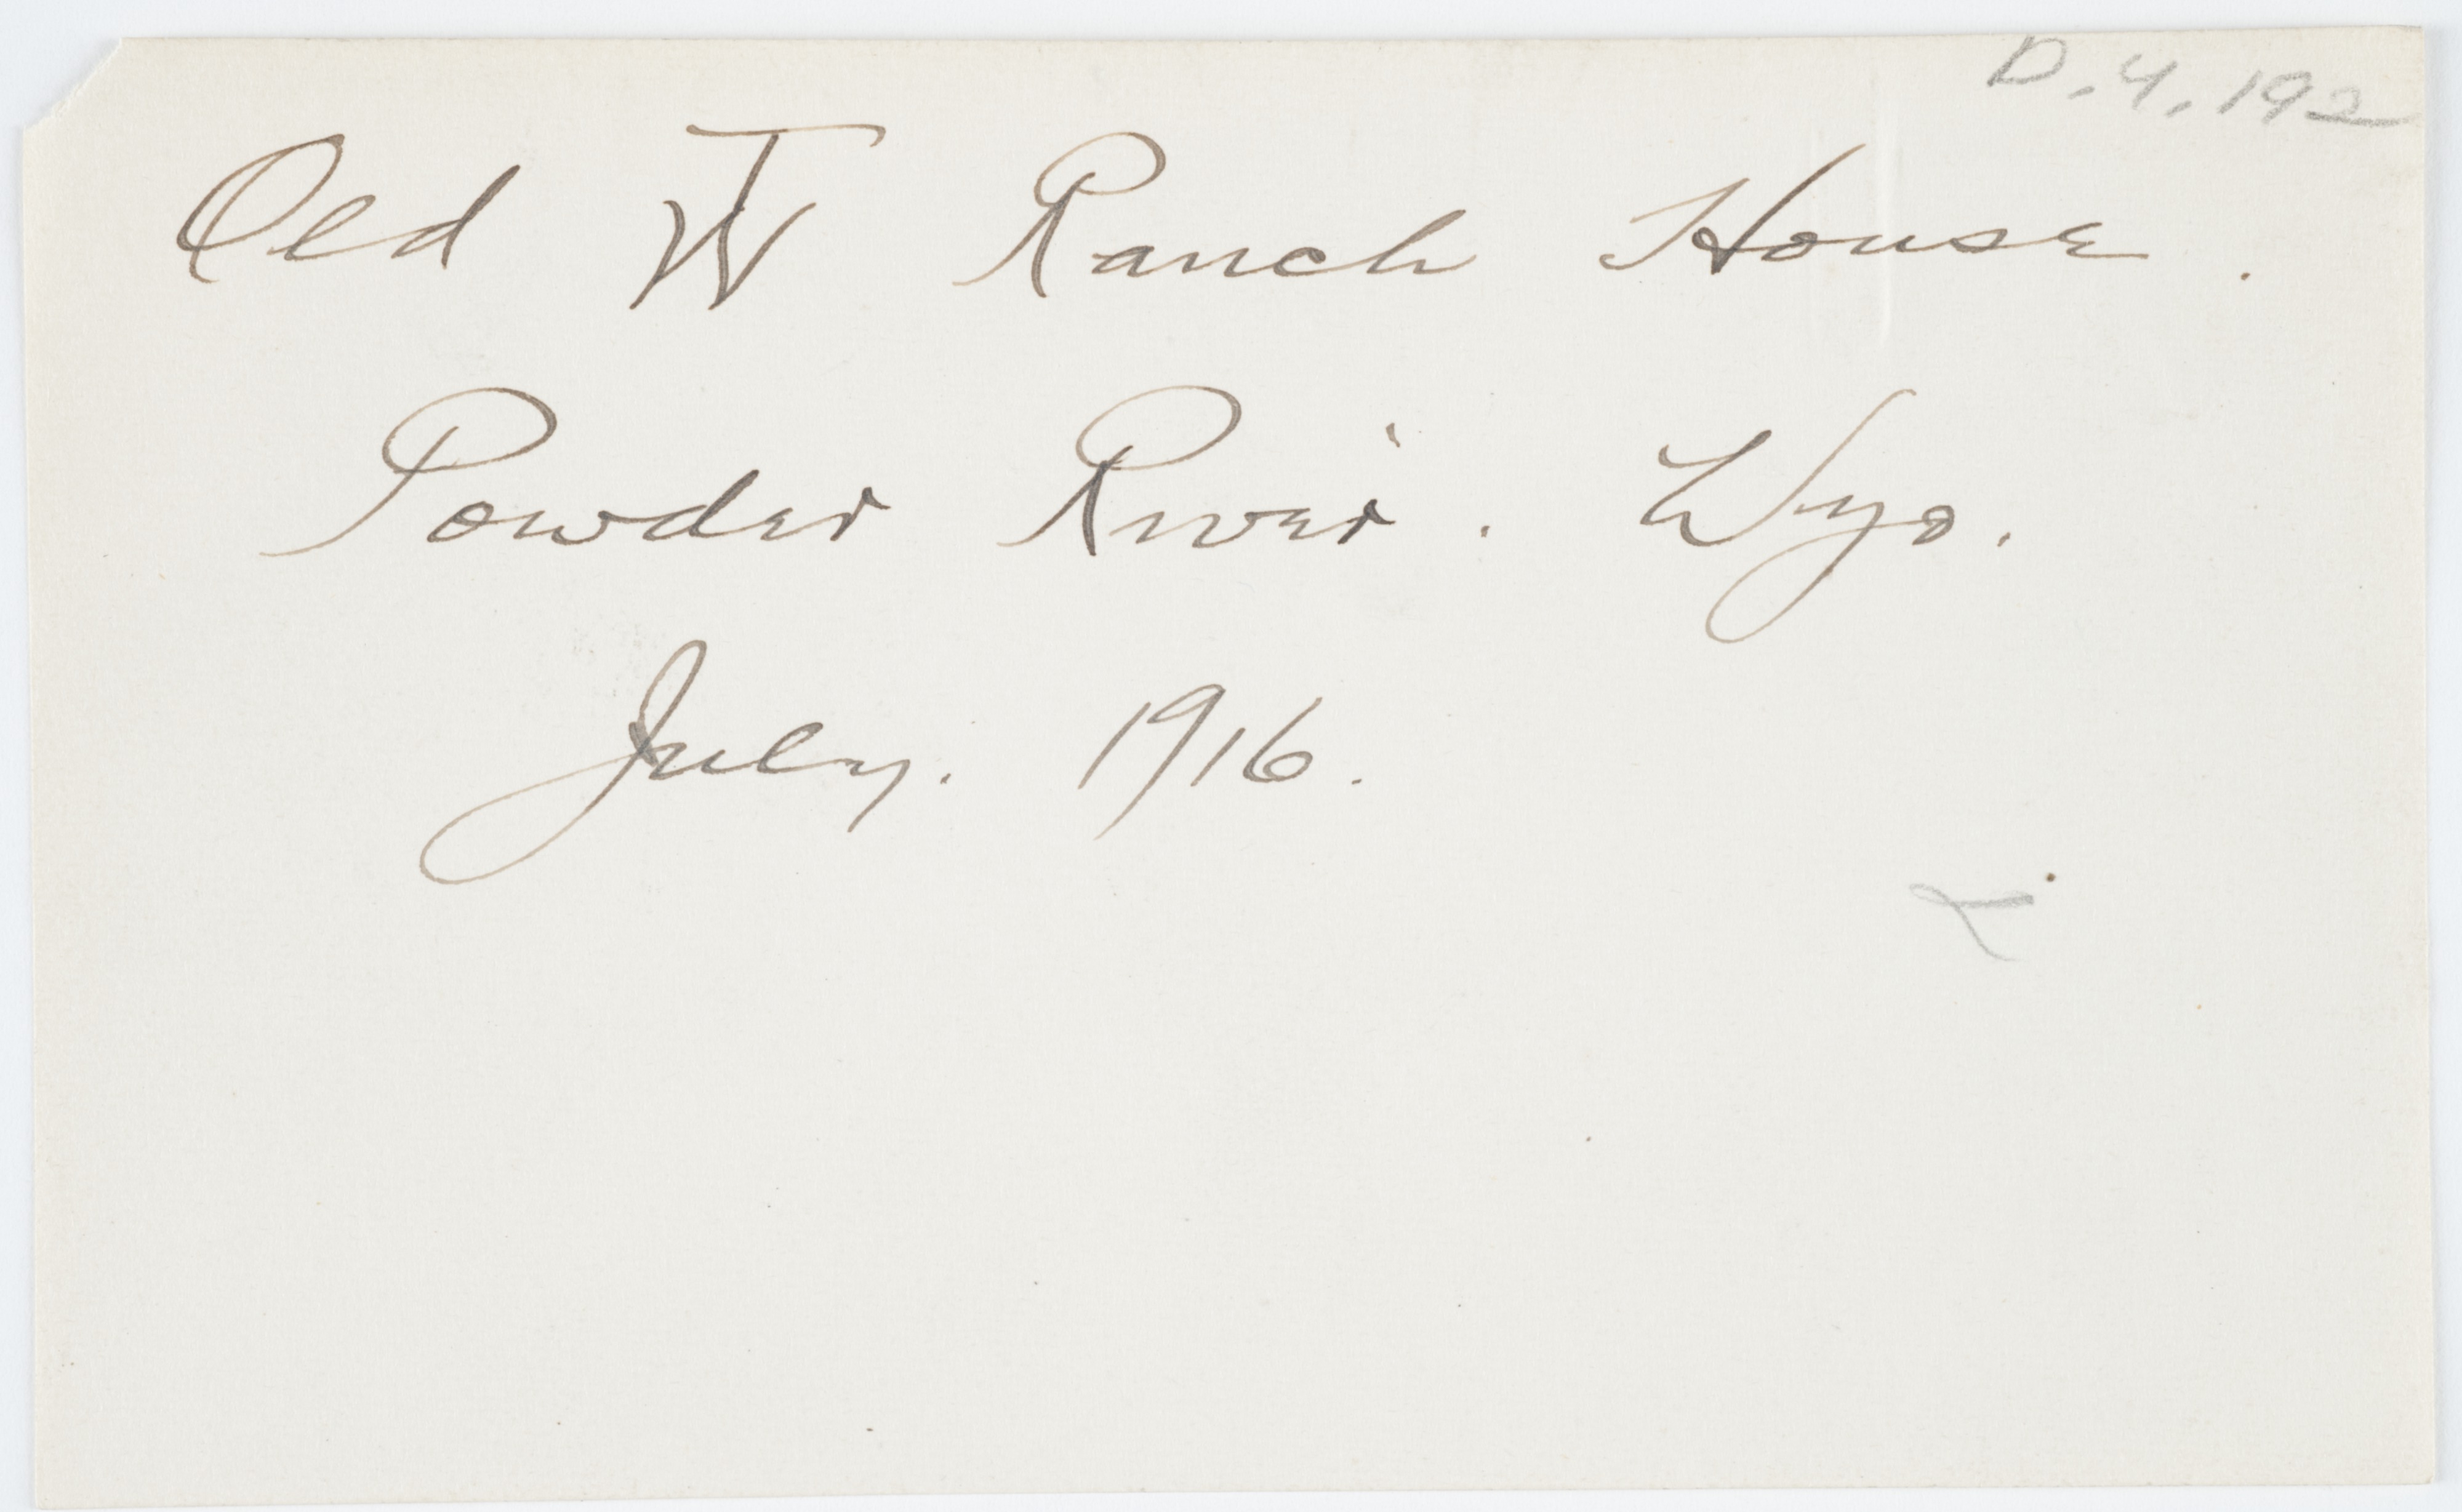 D.4.192
Old TW Ranch House.
Powder River. Wyo.
July. 1916.